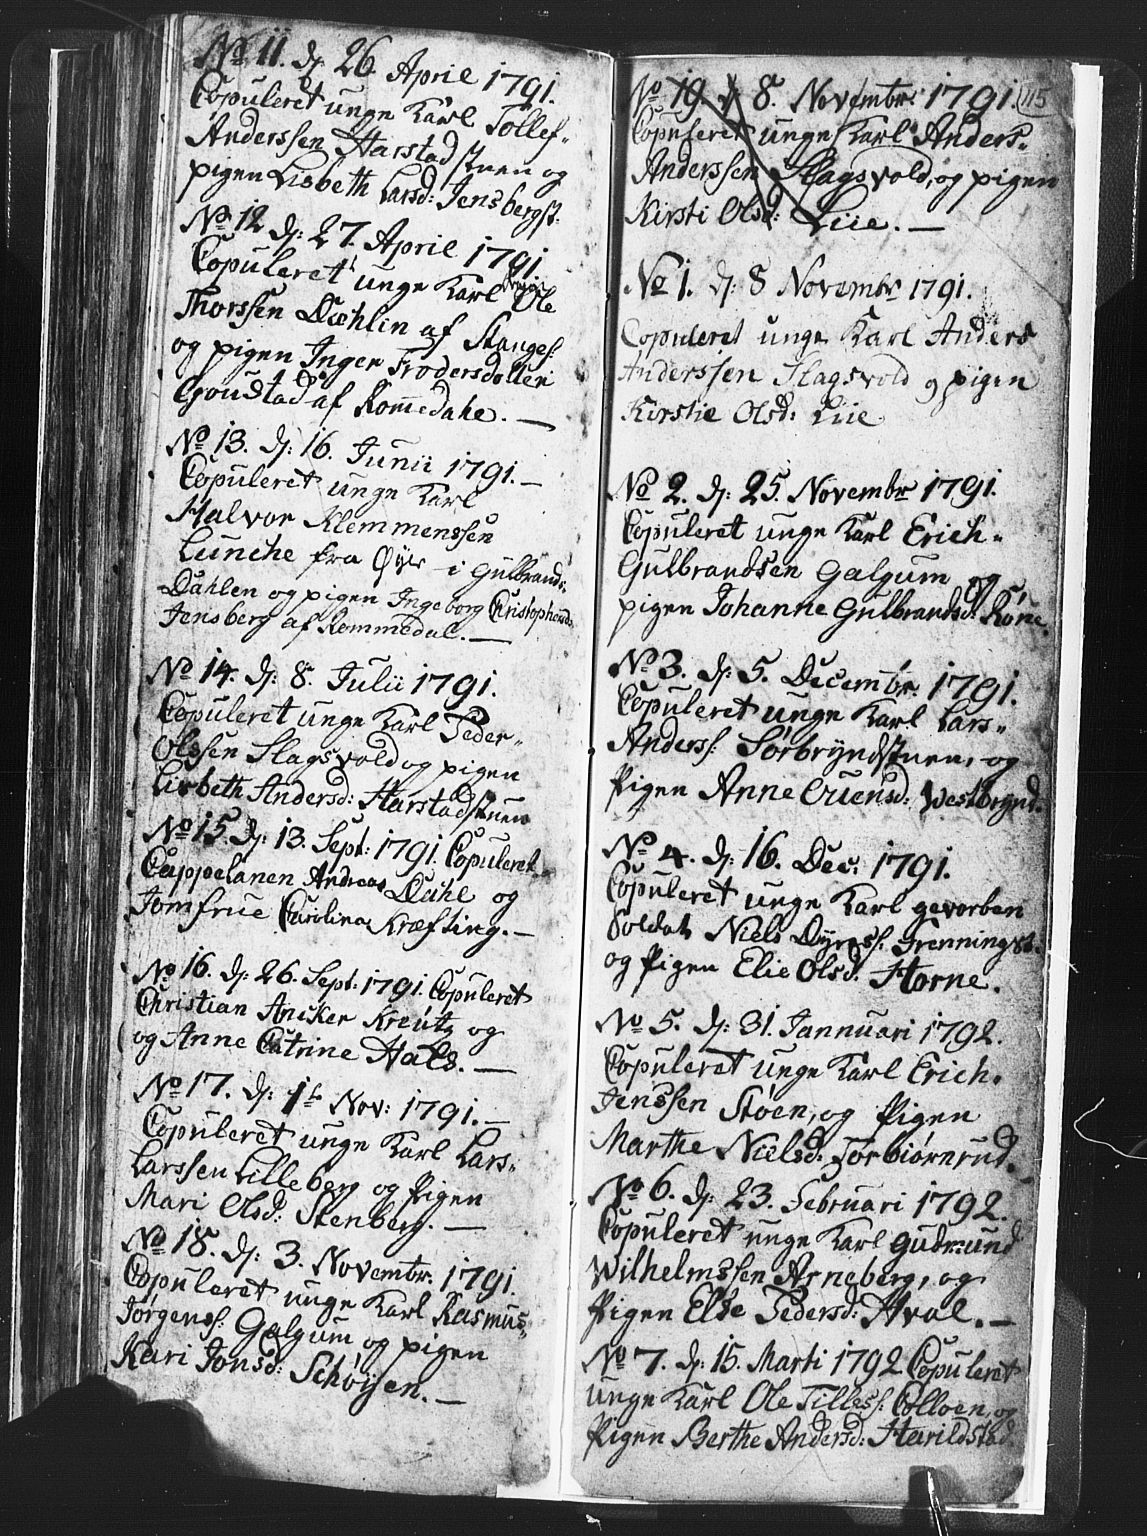 No 11. dj 26. April 1791.
Copuleret unge Karl Tollef-
Anderssen Harstadstuen og
pigen Lisbeth Larsd: Jensbergst.
No 12 dj: 27. April 1791.
Copuleret unge Karl Ole
Thorssen Dæhlin af Stangef:
og pigen Inger Frodersdotter
Goustad af Rommedahe. —
No 13. dj: 16. Junii 1791. —
Copuleret unge Karl
Halvor Klemmenssen
Lunche fra Øyer i Gulbrands-
Dahlen og pigen Ingeborg Christophersd:
Jensberg af Rommedal. —
No 14. dj: 8. Julii 1791.
Copuleret unge Karl Peder-
Olssen Slagsvold og pigen
Lisbeth Andersd: Harstadstuen
No 15 dj: 13. Sept: 1791. Copuleret
Cappelanen Andreas Dæhl og
Jomfrue Carolina Kræfting. —
No 16. dj: 26. Sept: 1791. Copuleret
Christian Ancker Kreutz og
og Anne Catrine Hals. —
No 17. dj: 1te Nov: 1791. —
Copuleret unge Karl Lars-
Larssen Lilleberg og Pigen
Mari Olsd: Stenberg. —
No 18. dj: 3. Novembr: 1791.
Copuleret unge Karl Rasmus-
Jørgensf: Galgum og pigen
Kari Jonsd: Schøyen. —
115
No 19 dj 8. Novembr: 1791.
Copuleret unge Karl Anders-
Anderssen Slagsvold, og pigen
Kirsti Olsd: Liie. —
No 1. dj: 8 Novembr 1791.
Copuleret unge Karl Anders
Anderssen Slagsvold og pigen
Kirstie Olsd: Liie
No 2. dj: 25. Novembr 1791.
Copuleret unge Karl Erich-
Gulbrandsen Galgum og
pigen Johanne Gulbrandsd: Røne.
No 3. dj: 5. Decembr: 1791.
Copuleret unge Karl Lars-
Anderss: Sørbryndstuen, og
Pigen Anne Evensd: Westbrynd.
No 4. dj: 16. Dec: 1791.
Copuleret unge Karl gevorben
Soldat Niels Dyress: Grenningst.
og Pigen Elie Olsd. Horne.
No 5. dj: 31. Jannuari 1792.
Copuleret unge Karl Erich-
Jenssen Støen, og Pigen
Marthe Nielsd: Torbiørnrud.
No 6. dj: 23. Februari 1792.
Copuleret unge Karl Gudmund
Wilhelmssen Arneberg, og
Pigen Else Pedersd: Hval. —
No 7. dj: 15. Marti 1792 Copuleret
unge Karl Ole Tilless: Colloen, og
Pigen Berthe Andersd: Harildstad.